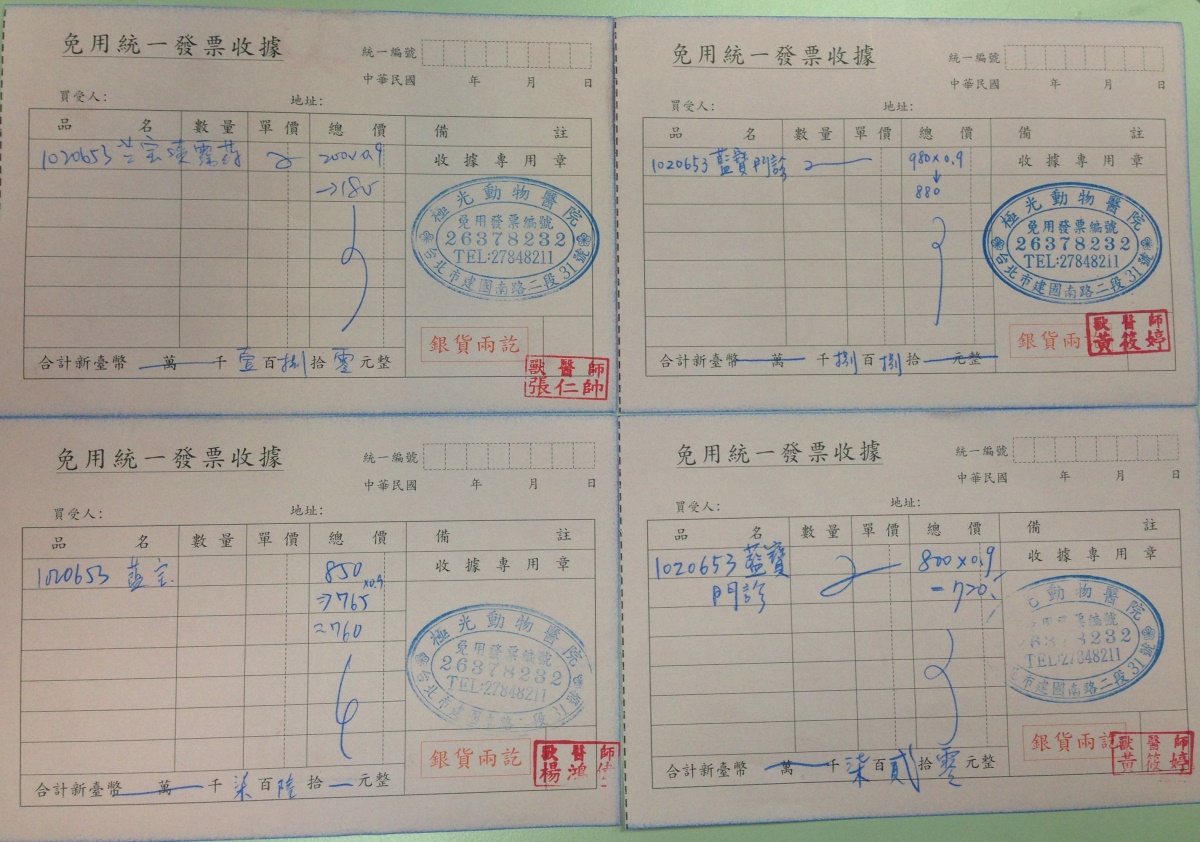 免用統一發票收據
統一編號
中華民國 年 月 日
買受人: 地址:
品名 數量 單價 總價 備註
1020653 200×0.9 收據專用章
→180
極光動物醫院
免用發票編號
26378232
TEL:27848211
台北市建國南路二段31號
銀貨兩訖
合計新臺幣 萬 千 壹 百 捌 拾 零 元整
獸醫師
張仁帥
免用統一發票收據
統一編號
中華民國 年 月 日
買受人: 地址:
品名 數量 單價 總價 備註
1020653 藍寶門診 980×0.9 收據專用章
↓
880
極光動物醫院
免用發票編號
26378232
TEL:27848211
台北市建國南路二段31號
銀貨兩
合計新臺幣 萬 千 捌 百 捌 拾 元整
獸醫師
黃筱婷
免用統一發票收據
統一編號
中華民國 年 月 日
買受人: 地址:
品名 數量 單價 總價 備註
1020653 藍宝 850 收據專用章
×0.9
⇒765
=760
極光動物醫院
免用發票編號
26378232
TEL:27848211
台北市建國南路二段31號
銀貨兩訖
合計新臺幣 萬 千 柒 百 陸 拾 元整
獸醫師
楊鴻
免用統一發票收據
統一編號
中華民國 年 月 日
買受人: 地址:
品名 數量 單價 總價 備註
1020653 藍寶 800×0.9 收據專用章
門診 =720
動物醫院
編號
8232
TEL:27848211
市建國南路二段31號
銀貨兩訖
合計新臺幣 萬 千 柒 百 貳 拾 零 元整
獸醫師
黃筱婷